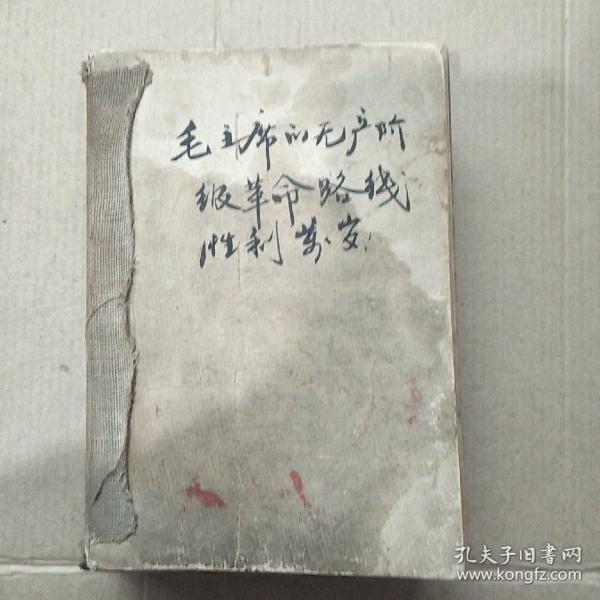 毛主席的无产阶
级革命路线
胜利万岁！
孔夫子旧書网
www.kongfz.com